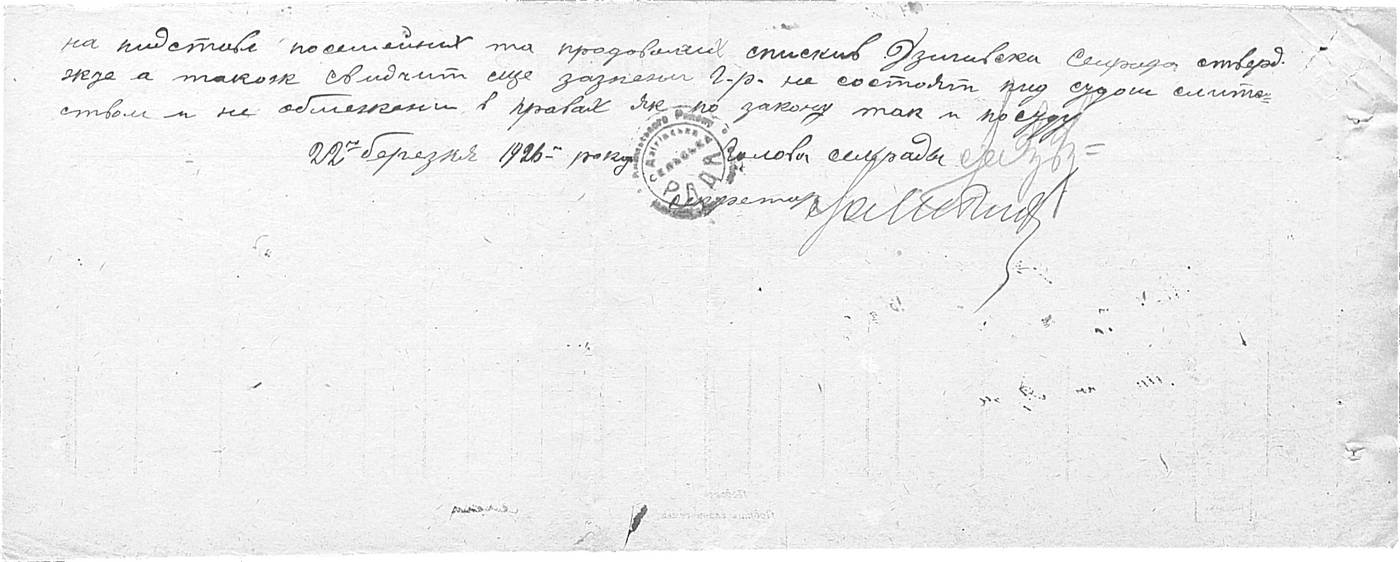 на пидставе посемейних та продовольчих спискив Дзигивска Сельрада отверд-
жуе а також свидчит що зазнении г-р. не состоят пид судом слитс=
ством и не обмежении в правах як по закону так и по суду
22го березня 1926- року Голова сельради
Секретар
СІЛЬСЬКА
РАДА